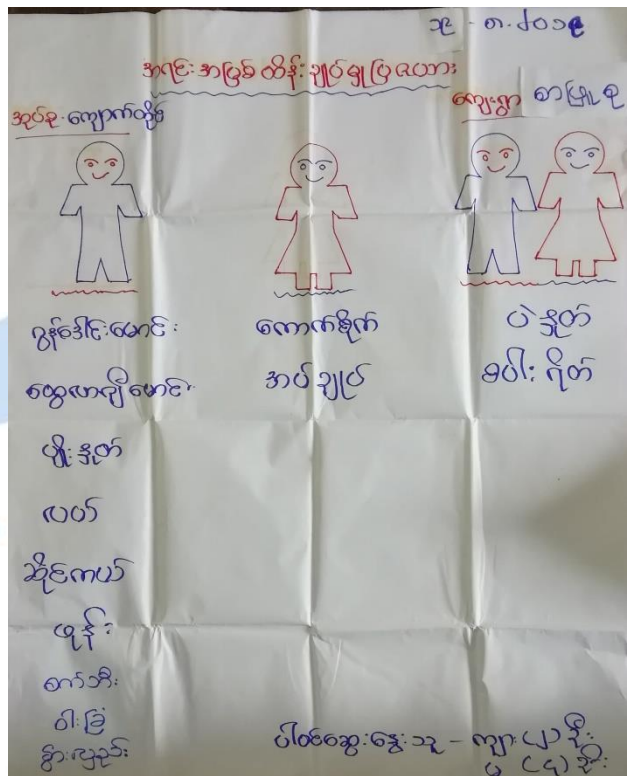 ၁၉ - ၈ - ၂၀၁၉
အရင်းအမြစ်ထိန်းချုပ်မှုပြဇယား
အုပ်စု - ကျောက်တိုင်
ကျေးရွာ စာဖြူစု
ဂွန်ဒေါင်းမောင်း
ထွေလာဂျီမောင်း
ပျိုးနှုတ်
လယ်
ဆိုင်ကယ်
ဖုန်း
စက်ဘီး
ဝါးခြံ
နွားလှည်း
ကောက်စိုက်
အပ်ချုပ်
ပဲနှုတ်
စပါးရိတ်
ပါဝင်ဆွေးနွေးသူ - ကျား (၂) ဦး
မ (၄) ဦး